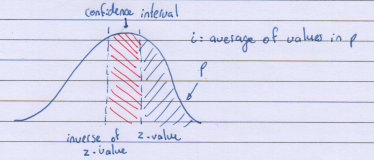 confidence interval
i: average of values in p
p
inverse of z-value
z-value